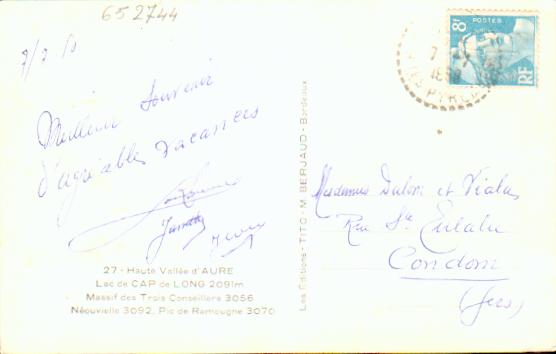 652744
7/7 50
Meilleur souvenir
d'agréables vacances
27 - Haute Vallée d'AURE
Lac de CAP de LONG 2091m
Massif des Trois Conseillers 3056
Néouvielle 3092, Pic de Ramougne 3070
Les Éditions - TITO - M. BERJAUD - Bordeaux
8F
POSTES
RF
Mesdames Dulom et Vialas
Rue Ste Eulalie
Condom
(Gers)